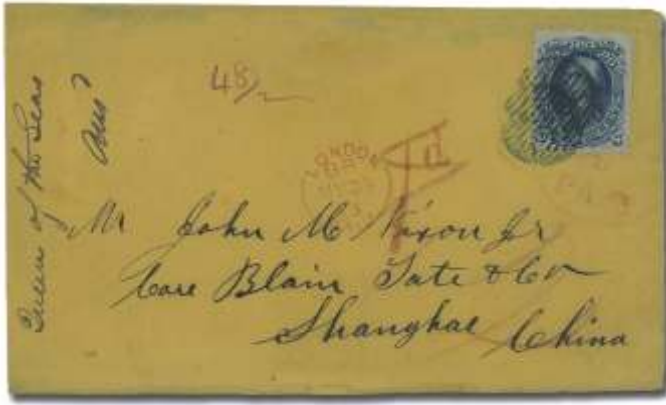 Queen of the Seas
48/2
LONDON
Mr John M Nixon Jr
Care Blain Tate & Co
Shanghae China